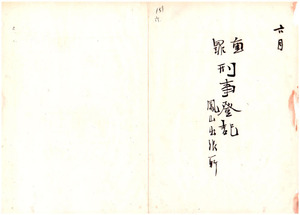 六月
重罪
刑事登記
鳳山出張所